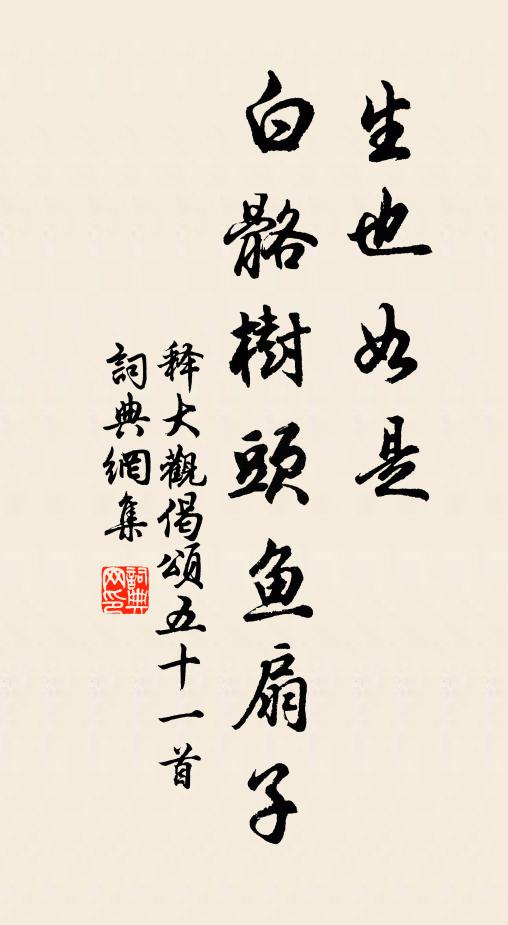 生也如是
白骼樹頭鱼扇子
释大觀偈頌五十一首
詞典網集
詞典
网印